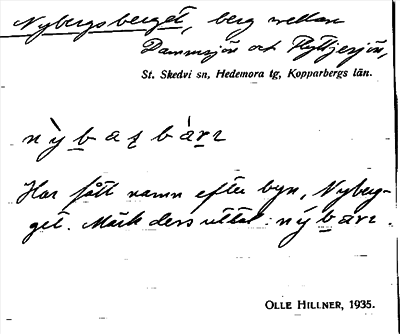 Nybergsberget, berg mellan
Dammsjön och Flyttjesjön,
St. Skedvi sn, Hedemora tg, Kopparbergs län.
Har fått namn efter byn, Nyber-
get. Märk dess uttal:
OLLE HILLNER, 1935.